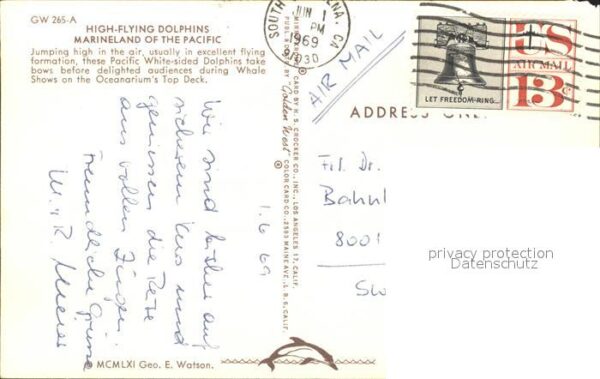 GW 265-A
HIGH-FLYING DOLPHINS
MARINELAND OF THE PACIFIC
Jumping high in the air, usually in excellent flying
formation, these Pacific White-sided Dolphins take
bows before delighted audiences during Whale
Shows on the Oceanarium's Top Deck.
Wir sind bisher auf
sicherem Kurs und
geniessen die Reise
aus vollen Zügen.
Freundliche Grüsse
M. + R. Meier
1.6.69
© MCMLXI Geo. E. Watson.
MIRRO-KROME® CARD BY H. S. CROCKER CO., INC., LOS ANGELES 17, CALIF.
PUBL. BY "Golden West" COLOR CARD CO., 2593 MAINE AVE., L. B. 6, CALIF.
SOUTH PASADENA, CA
JUN 1
PM
1969
91030
AIR MAIL
LET FREEDOM RING
US
AIR MAIL
13c
ADDRESS ONLY
Frl. Dr.
Bahnh
8001
SW
privacy protection
Datenschutz